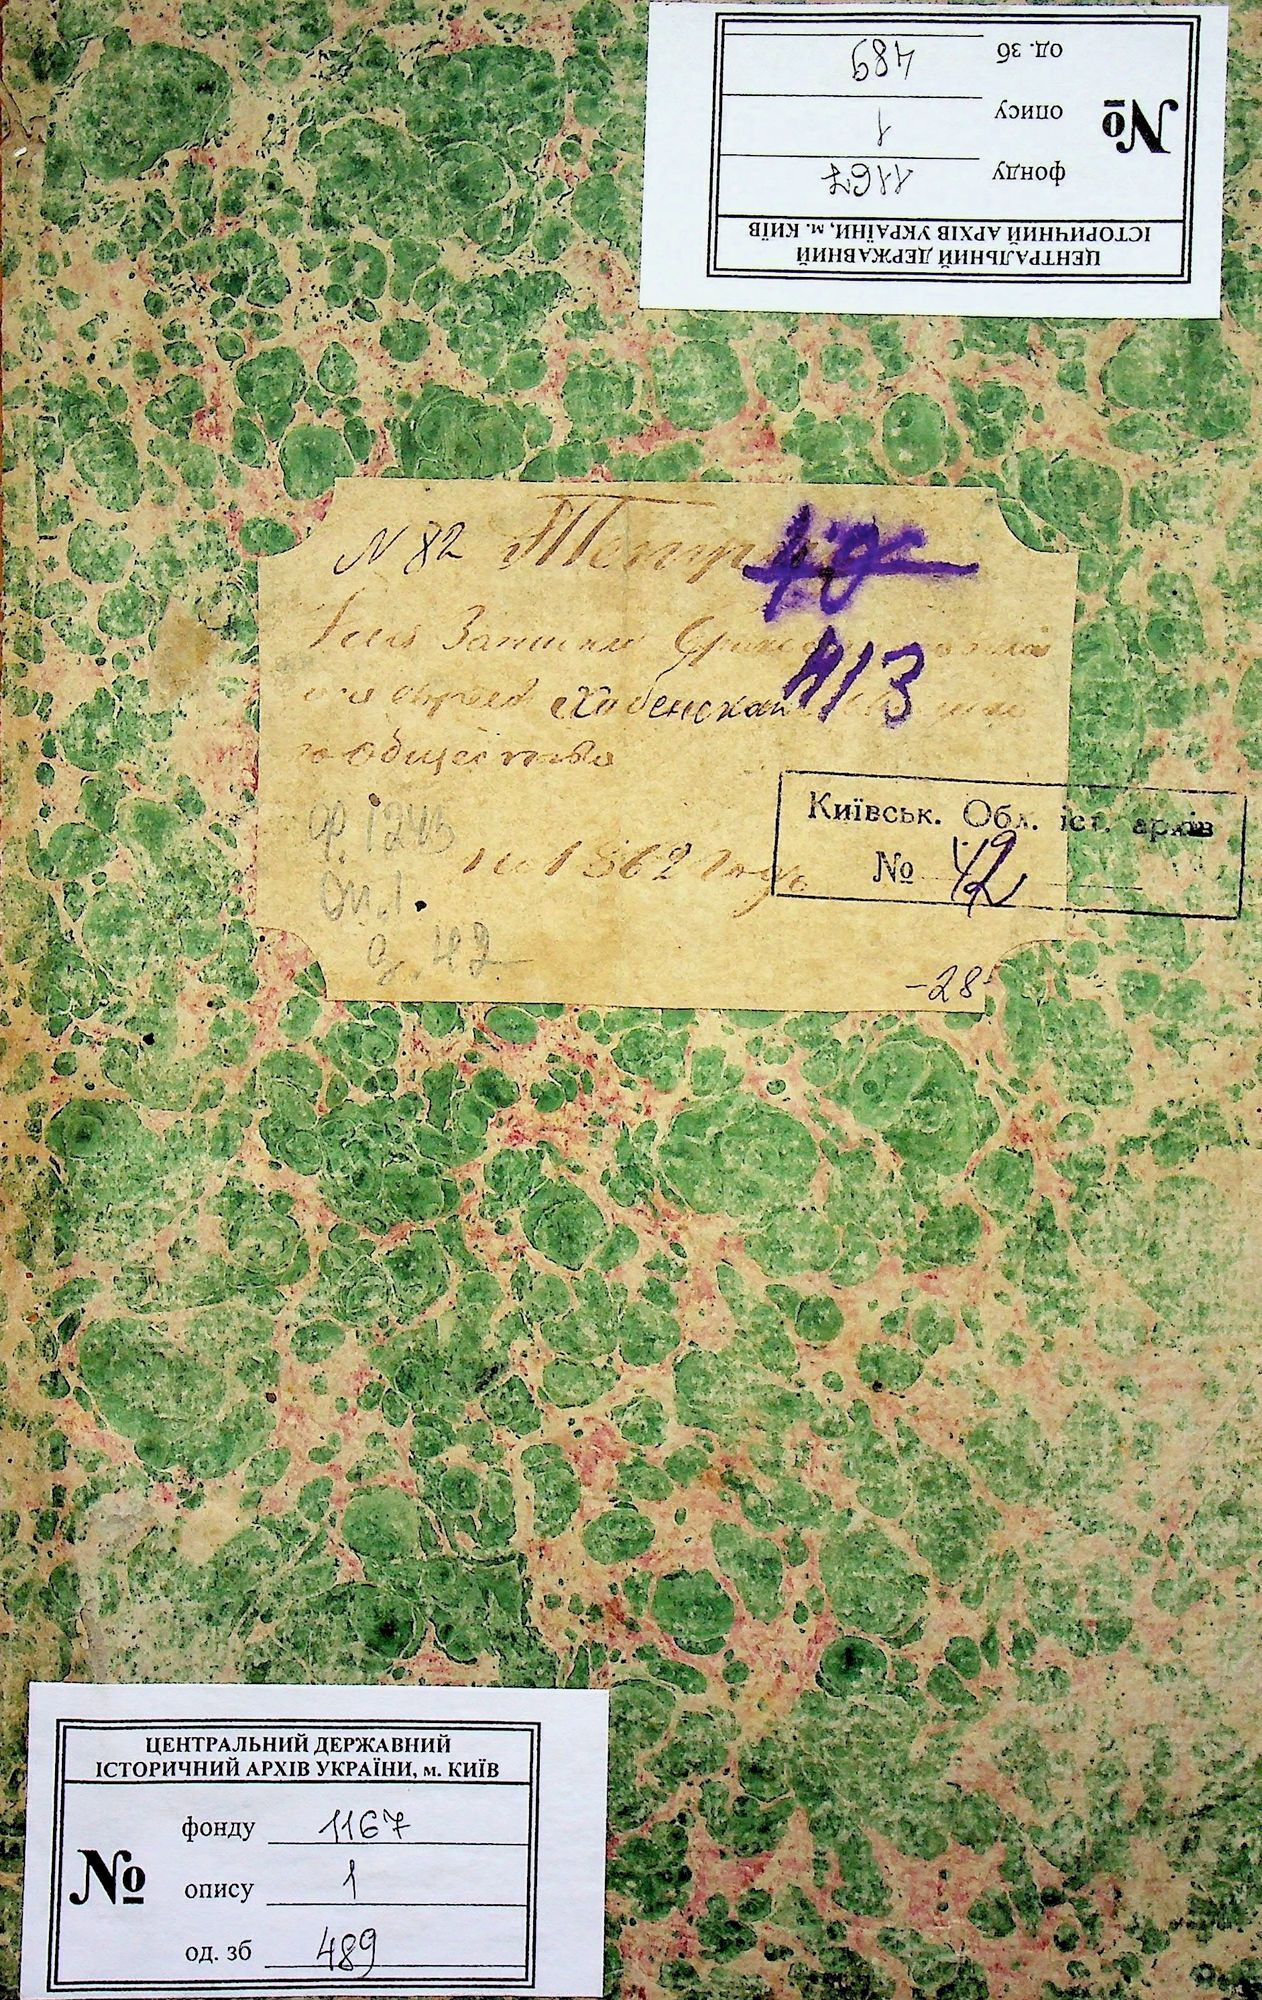 ЦЕНТРАЛЬНИЙ ДЕРЖАВНИЙ
ІСТОРИЧНИЙ АРХІВ УКРАЇНИ, м. КИЇВ
№
фонду 1167
опису 1
од. зб 489
N 82
113
Для Записки
Хабенскаго
го Общества
на 1862 Годъ
ф. 1243
Оп. 1.
д. 42
Київськ. Обл. іст. архів
№ 42
-28
ЦЕНТРАЛЬНИЙ ДЕРЖАВНИЙ
ІСТОРИЧНИЙ АРХІВ УКРАЇНИ, м. КИЇВ
№
фонду 1167
опису 1
од. зб 489